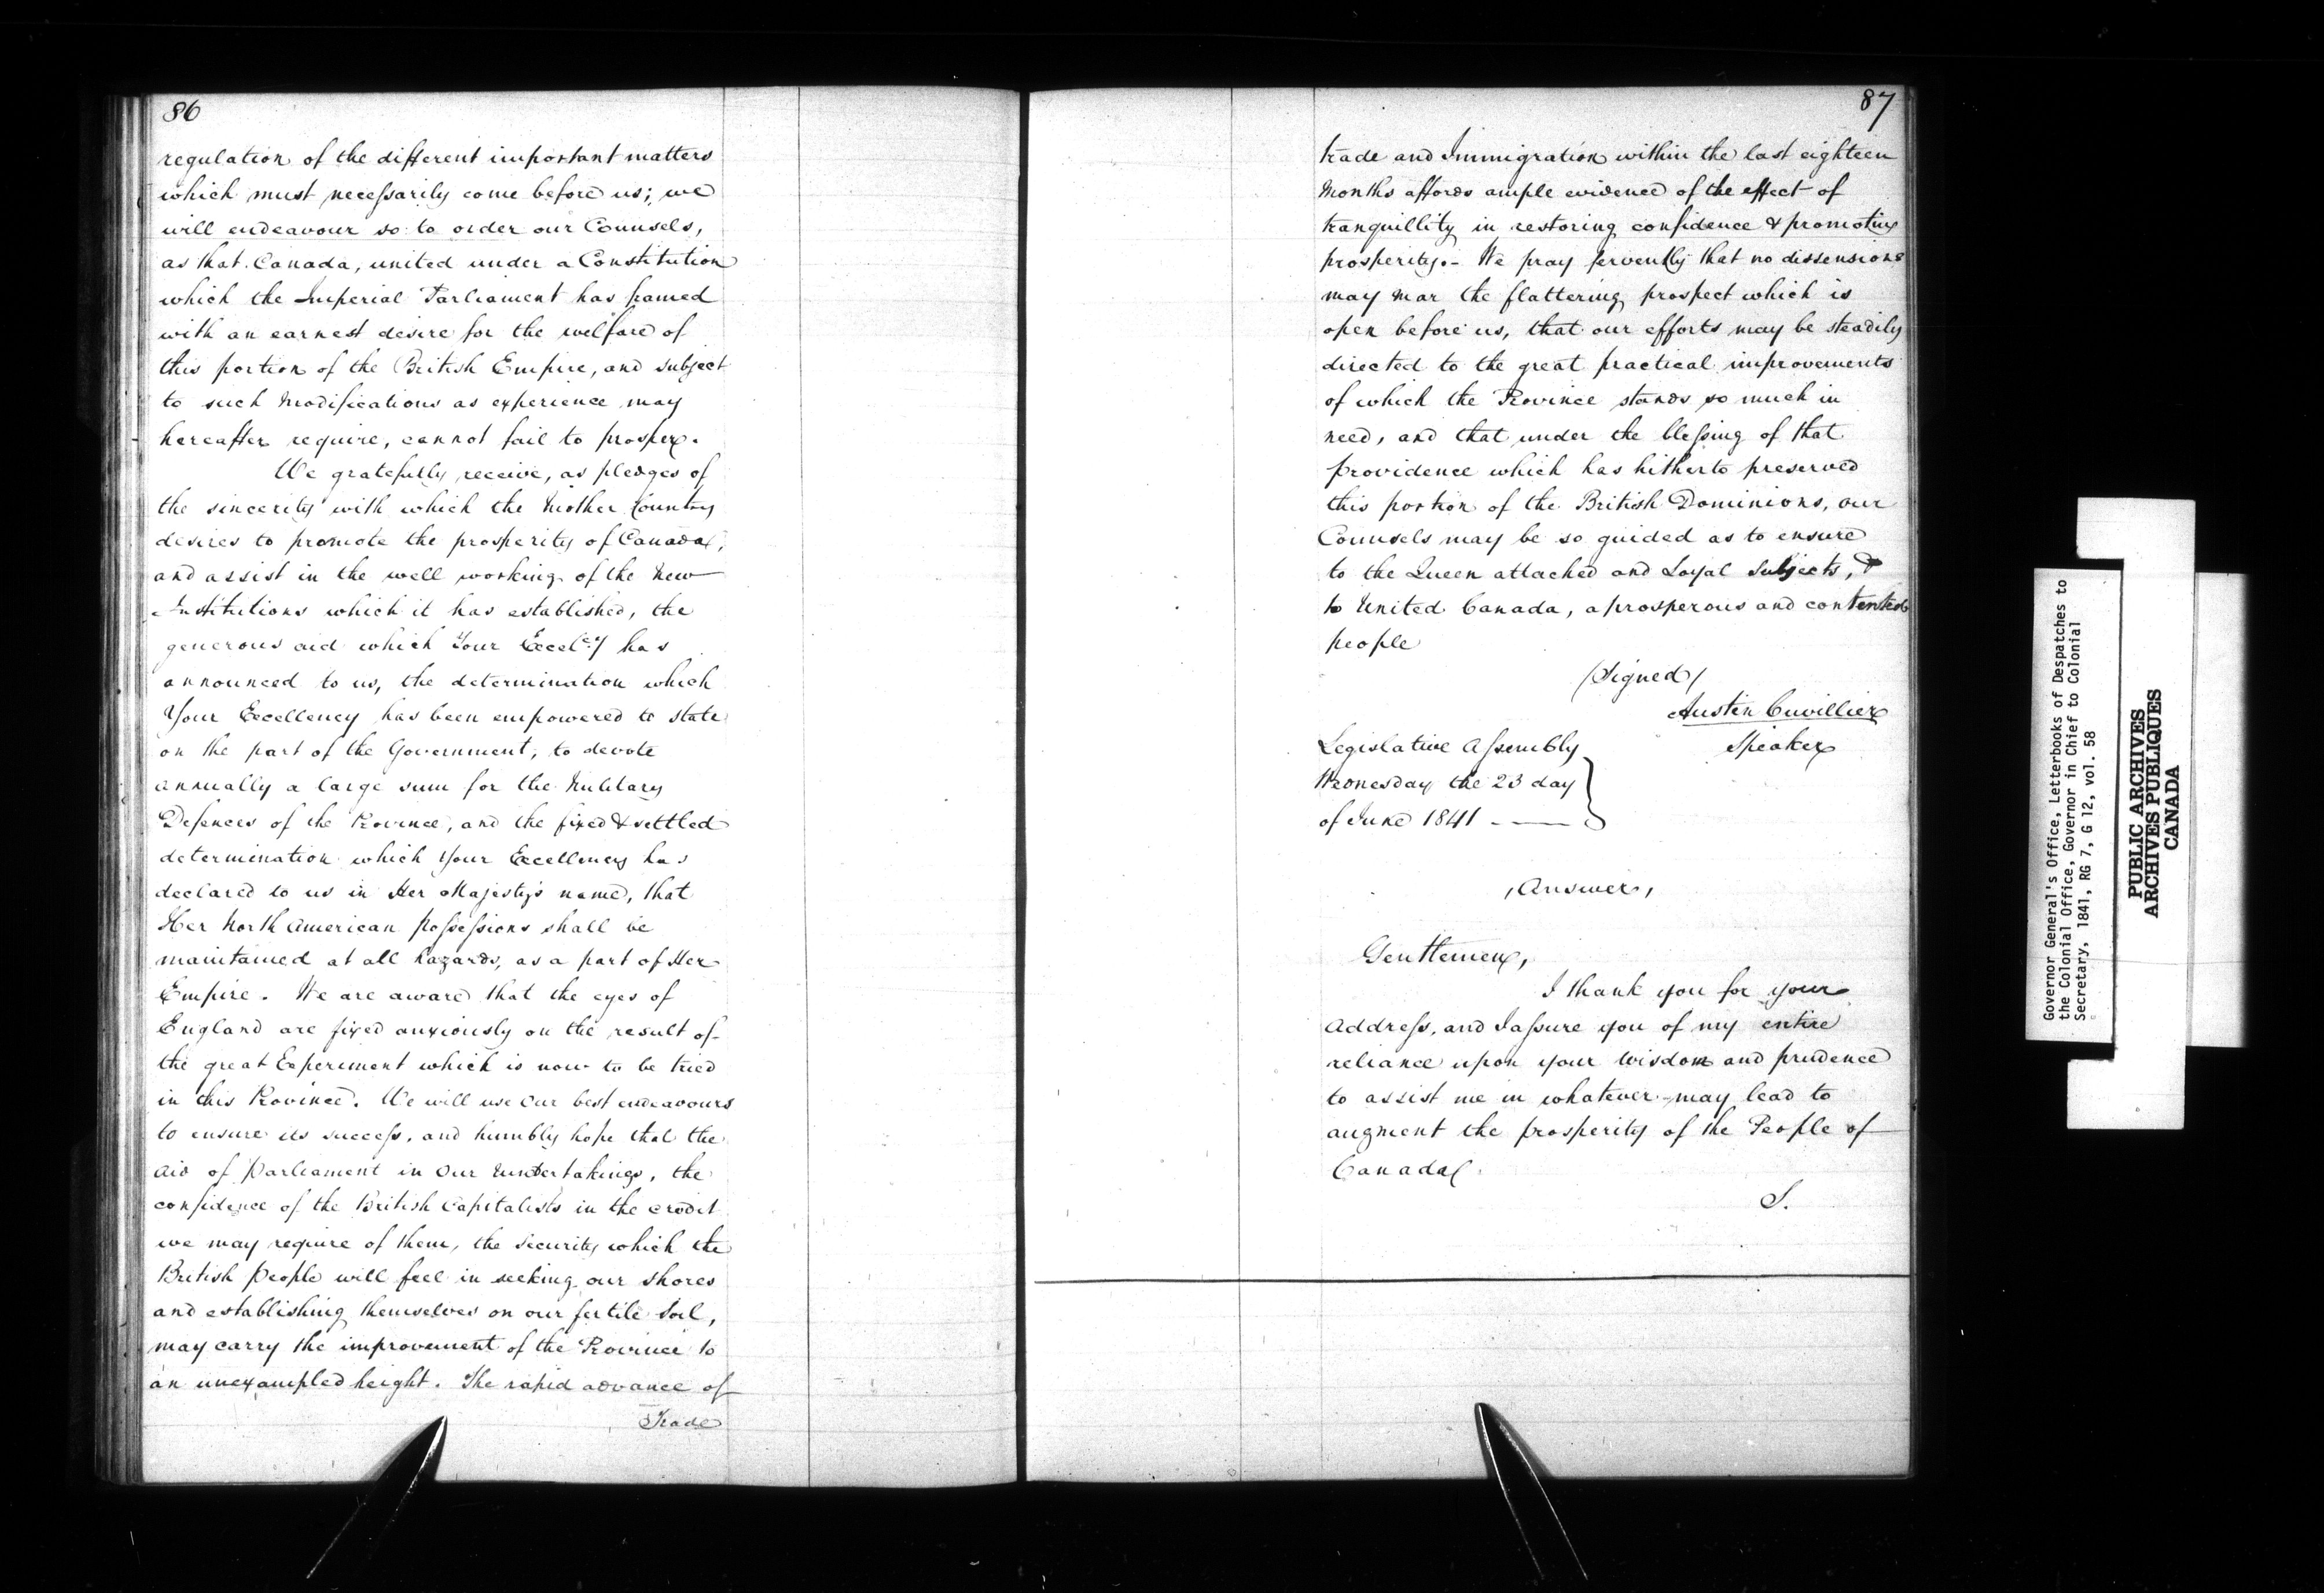 86
regulation of the different important matters
which must necessarily come before us; we
will endeavour so to order our Counsels,
as that Canada, united under a Constitution
which the Imperial Parliament has framed
with an earnest desire for the welfare of
this portion of the British Empire, and subject
to such Modifications as experience may
hereafter require, cannot fail to prosper.
We gratefully receive, as pledges of
the sincerity with which the Mother Country
desires to promote the prosperity of Canada,
and assist in the well working of the New
Institutions which it has established, the
generous aid which Your Excelcy has
announced to us, the determination which
Your Excellency has been empowered to state
on the part of the Government, to devote
annually a large sum for the Military
Defences of the Province, and the fixed & settled
determination which Your Excellency has
declared to us in Her Majesty's name, that
Her North American Possessions shall be
maintained at all hazards, as a part of Her
Empire. We are aware that the eyes of
England are fixed anxiously on the result of
the great Experiment which is now to be tried
in this Province. We will use our best endeavours
to ensure its success, and humbly hope that the
aid of Parliament in our undertakings, the
confidence of the British Capitalists in the credit
we may require of them, the security which the
British People will feel in seeking our shores
and establishing themselves on our fertile soil,
may carry the improvement of the Province to
an unexampled height. The rapid advance of
Trade
87
trade and Immigration within the last eighteen
Months affords ample evidence of the effect of
tranquillity in restoring confidence & promoting
prosperity.- We pray fervently that no dissensions
may mar the flattering prospect which is
open before us, that our efforts may be steadily
directed to the great practical improvements
of which the Province stands so much in
need, and that under the blessing of that
providence which has hitherto preserved
this portion of the British Dominions, our
Counsels may be so guided as to ensure
to the Queen attached and Loyal Subjects, &
to United Canada, a prosperous and contented
people
/Signed/
Austin Cuvillier
Speaker
Legislative Assembly
Wednesday the 23 day
of June 1841 - —
,Answer,
Gentlemen,
I thank you for your
Address, and I assure you of my entire
reliance upon your wisdom and prudence
to assist me in whatever may lead to
augment the prosperity of the People of
Canada.
S.
Governor General's Office, Letterbooks of Despatches to
the Colonial Office, Governor in Chief to Colonial
Secretary, 1841, RG 7, G 12, vol. 58
PUBLIC ARCHIVES
ARCHIVES PUBLIQUES
CANADA